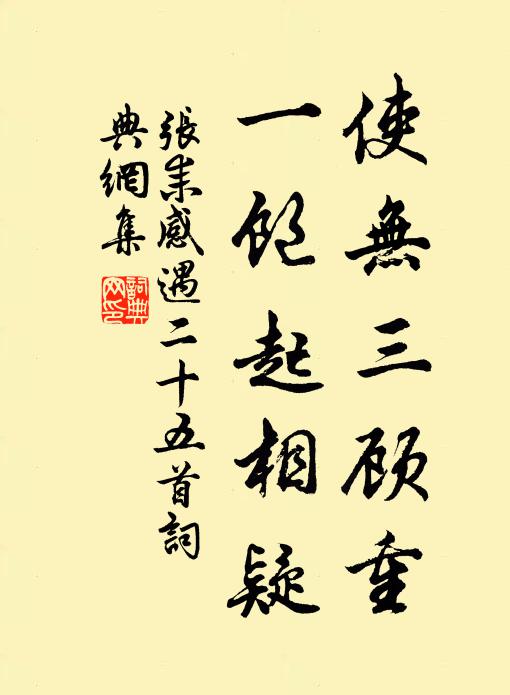 使無三顾重
一飽起相疑
張耒感遇二十五首詞
典網集
詞典
网印